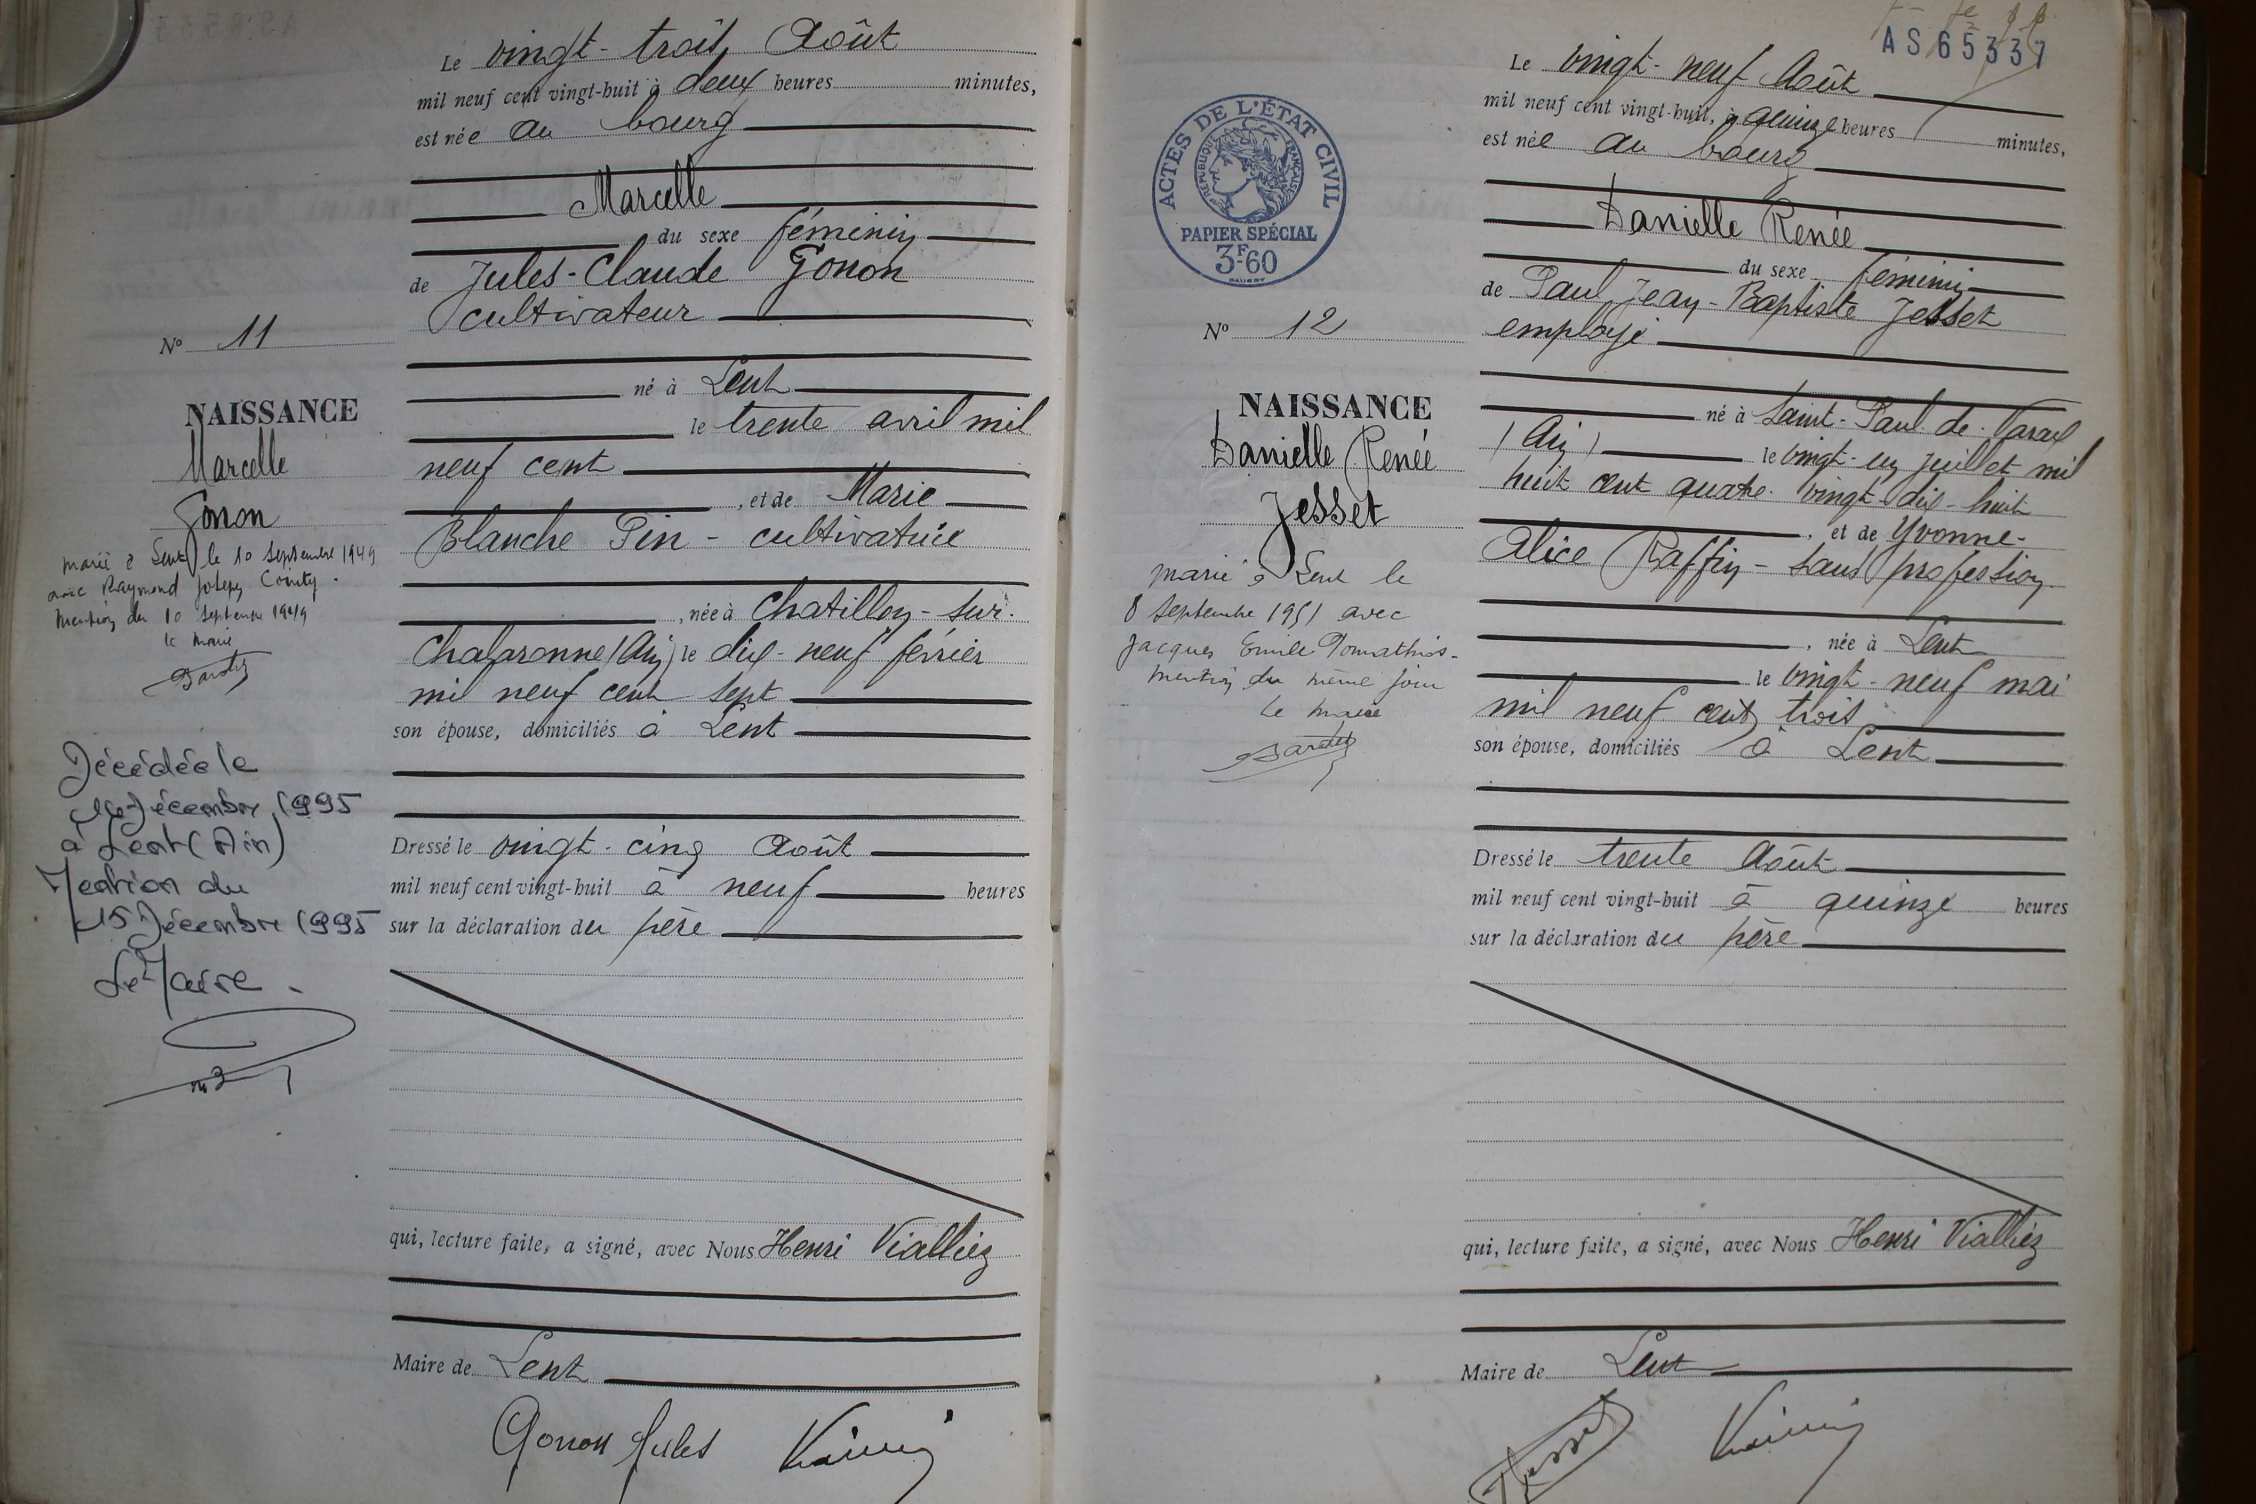 Le vingt-trois Août
mil neuf cent vingt-huit à deux heures minutes,
est née au bourg
Marcelle
du sexe féminin
de Jules-Claude Gonon
cultivateur
né à Lent
le trente avril mil
neuf cent
, et de Marie
Blanche Pin - cultivatrice
, née à Chatillon-sur-
Chalaronne (Ain) le dix-neuf février
mil neuf cent sept
son épouse, domiciliés à Lent
Dressé le vingt-cinq Août
mil neuf cent vingt-huit à neuf heures
sur la déclaration du père
qui, lecture faite, a signé, avec Nous Henri Vialliez
Maire de Lent
Gonon Jules
No 11
NAISSANCE
Marcelle
Gonon
marié à Lent le 10 septembre 1949
avec Raymond Joseph
Mention du 10 septembre 1949
le maire
Décédée le
Décembre 1995
à Lent (Ain)
Mention du
15 Décembre 1995
Le Maire -
AS 65337
Le vingt-neuf Août
mil neuf cent vingt-huit, à quinze heures minutes,
est née au bourg
Danielle Renée
du sexe féminin
de Paul Jean-Baptiste Jesset
employé
né à Saint-Paul-de-Varax
(Ain) le vingt-un juillet mil
huit cent quatre-vingt-dix-huit
, et de Yvonne-
Alice Raffin - sans profession
, née à Lent
le vingt-neuf mai
mil neuf cent trois
son épouse, domiciliés à Lent
Dressé le trente Août
mil neuf cent vingt-huit à quinze heures
sur la déclaration du père
qui, lecture faite, a signé, avec Nous Henri Vialliez
Maire de Lent
Jesset
ACTES DE L'ÉTAT CIVIL
RÉPUBLIQUE FRANÇAISE
PAPIER SPÉCIAL
3F-60
No 12
NAISSANCE
Danielle Renée
Jesset
marié à Lent le
8 septembre 1951 avec
Jacques Emile
Mention du même jour
Le maire